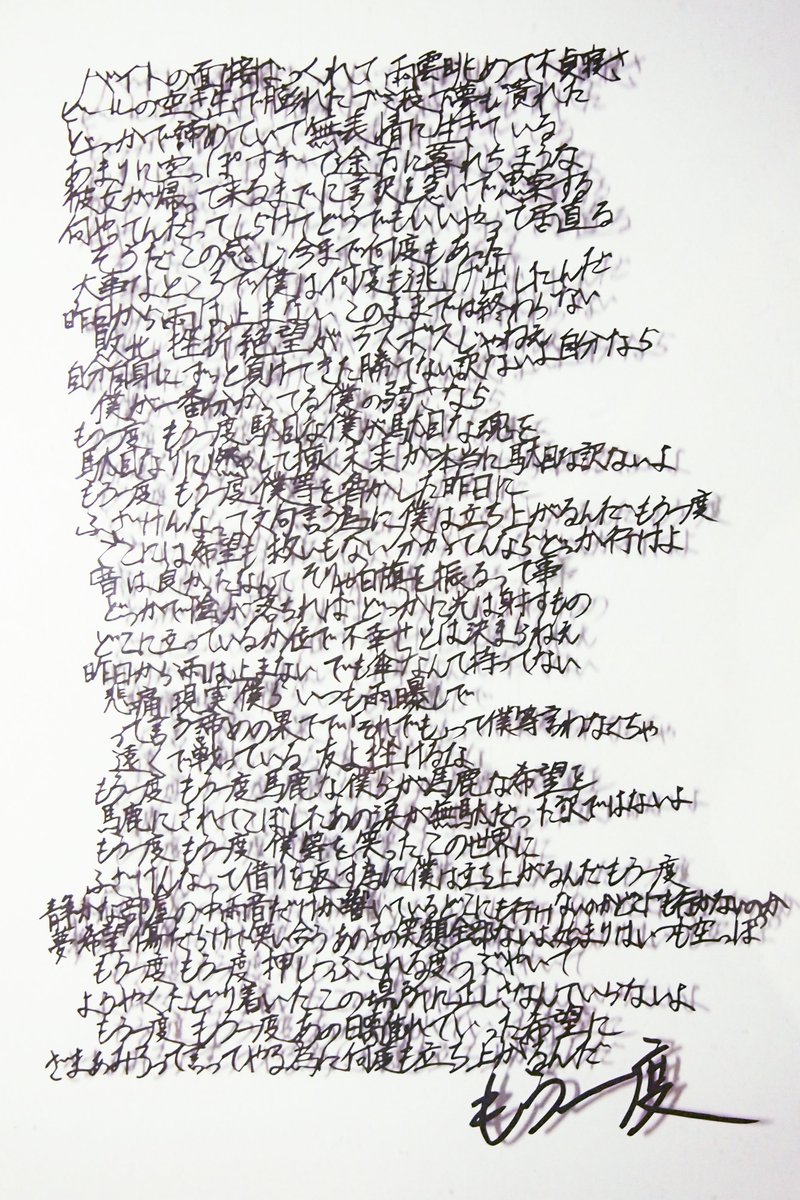 バイトの面接ばっくれて 雨雲眺めて不貞寝さ
ビールの空き缶で膨れたゴミ袋で夢も潰れた
どっかで諦めていて無表情に生きている
あまりに空っぽすぎて途方に暮れちまうな
彼女が帰って来るまでに言訳を急いで思案する
何やってんだってしらけてどうでもいいやって居直る
そうだ この感じ 今まで何度もあった
大事なところで僕は何度も逃げ出したんだ
昨日から雨は止まない このままでは終わらない
敗北 挫折 絶望が ラスボスじゃねえ 自分なら
自分自身にずっと負けてきた 勝てない訳ないよ
僕が一番分かってる 僕の弱さなら
もう一度 もう一度 駄目な僕が駄目な魂を
駄目なりに燃やして描く未来が本当に駄目な訳ないよ
もう一度 もう一度 僕等を脅かした昨日に
ふざけんなって文句言う為に 僕は立ち上がるんだ もう一度
ここには希望も救いもない 分かってんならどっか行けよ
昔は良かったなんて そりゃ白旗を振るって事
どっかで陰が落ちれば どっかに光は射すもの
どこに立っているか位で 不幸せとは決まらねえ
昨日から雨は止まない でも傘なんて持ってない
悲痛 現実 僕ら いつも雨曝しで
って言う諦めの果てで「それでも」って僕等言わなくちゃ
遠くで戦っている 友よ挫けるな
もう一度 もう一度 馬鹿な僕らが馬鹿な希望を
馬鹿にされてこぼしたあの涙が無駄だった訳ではないよ
もう一度 もう一度 僕等を笑ったこの世界に
ふざけんなって借りを返す為に 僕は立ち上がるんだ もう一度
静かな部屋の中 雨音だけが響いている どこにも行けないのか どこにも行かないのか
夢 希望 傷だらけで笑い合うあの子の笑顔 全部ないよ 始まりはいつも空っぽ
もう一度 もう一度 押しつぶされる度つぶやいて
ようやくたどり着いたこの場所に正しさなんていらないよ
もう一度 もう一度 あの日離れていった希望に
ざまあみろって言ってやる為に 何度も立ち上がるんだ
もう一度